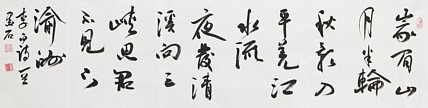 峩眉山
月半輪
秋影入
平羌江
水流
夜發清
溪向三
峽思君
不見下
渝州
李白詩